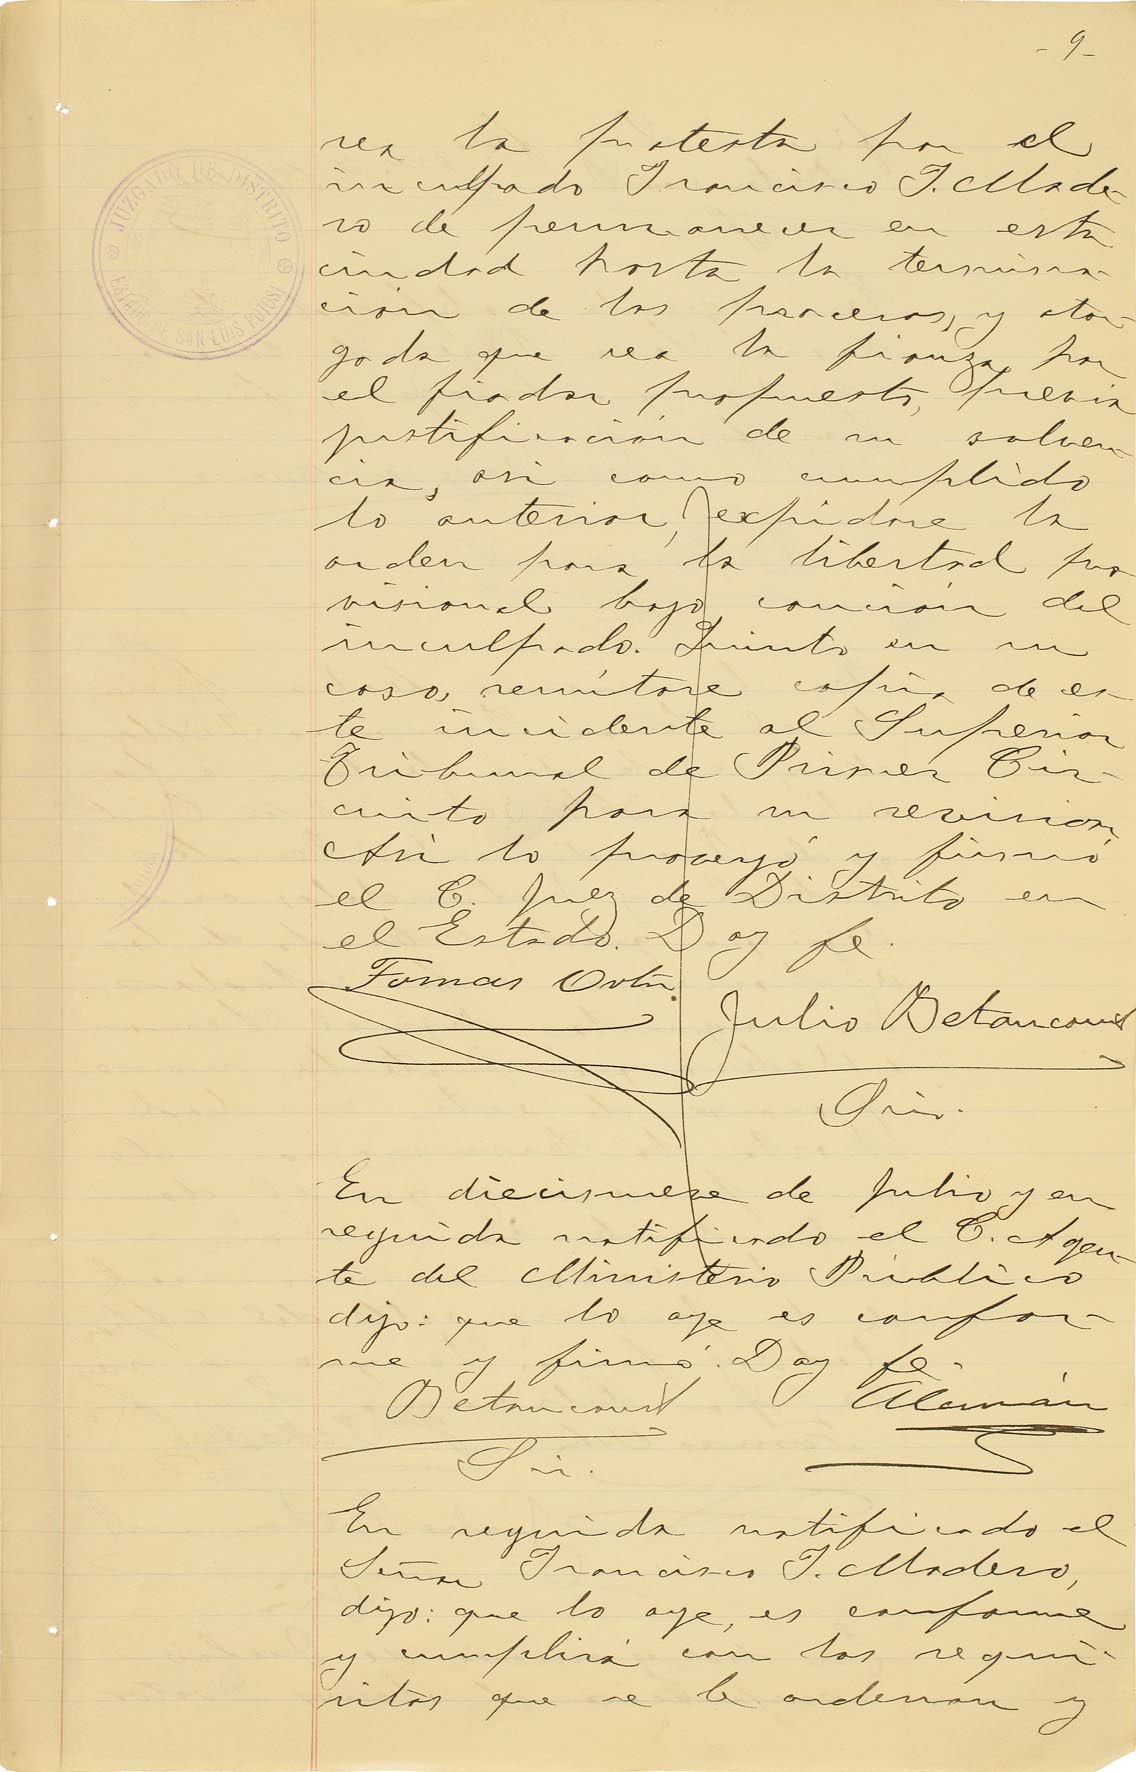 - 9 -
JUZGADO DE DISTRITO
ESTADO DE SAN LUIS POTOSI
sea la protesta por el
inculpado Francisco I. Made-
ro de permanecer en esta
ciudad hasta la termina-
ción de los procesos, y otor-
gada que sea la fianza por
el fiador propuesto, previa
justificación de su solven-
cia, asi como cumplido
lo anterior, expidase la
orden para la libertad pro
visional bajo caución del
inculpado. Quinto en su
caso, remitase copia de es-
te incidente al Superior
Tribunal de Primer Cir-
cuito para su revision.
Asi lo proveyó y firmó
el C. Juez de Distrito en
el Estado. Doy fe.
Tomas Ortiz.
Julio Betancourt
Srio.
En diecinueve de Julio y en
seguida notificado el C. Agen-
te del Ministerio Público
dijo: que lo oye es confor-
me y firmó. Doy fe.
Betancourt Alemán
Sri.
En seguida notificado el
Señor Francisco I. Madero,
dijo: que lo oye, es conforme
y cumplirá con los requi-
sitos que se le ordenan y